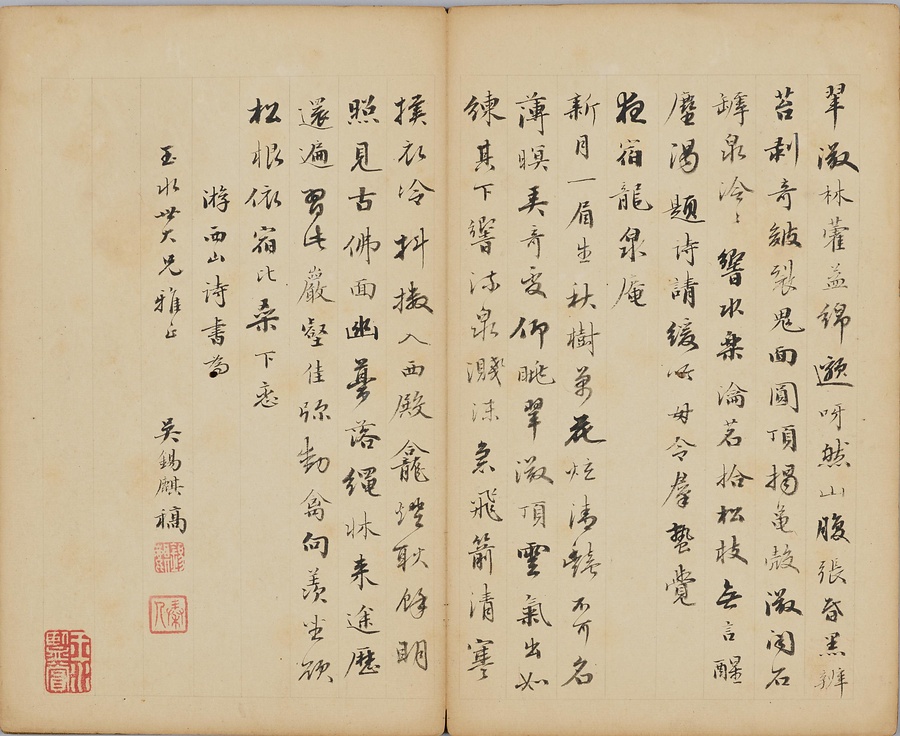 翠微林藿益綿邈呀然山腹張昏黑辨
苔剥奇皴裂鬼面圓頂揭龜殼微聞石
罅泉泠〻響水樂瀹茗拾松枝無言醒
塵濁題詩請緩吟毋令羣蟄覺
夜宿龍泉庵
新月一眉生秋樹萬花炫清豔不可名
薄暝弄奇變仰眺翠微頂雲氣出如
練其下響流泉濺沫急飛箭清寒
撲衣冷抖擻入西殿龕燈耿餘明
照見古佛面幽夢落繩牀来途歷
還遍習此巖壑佳弥動禽向羨坐欲
松根依宿比桑下戀
游西山詩書為
玉水世大兄雅正
吳錫麒稿